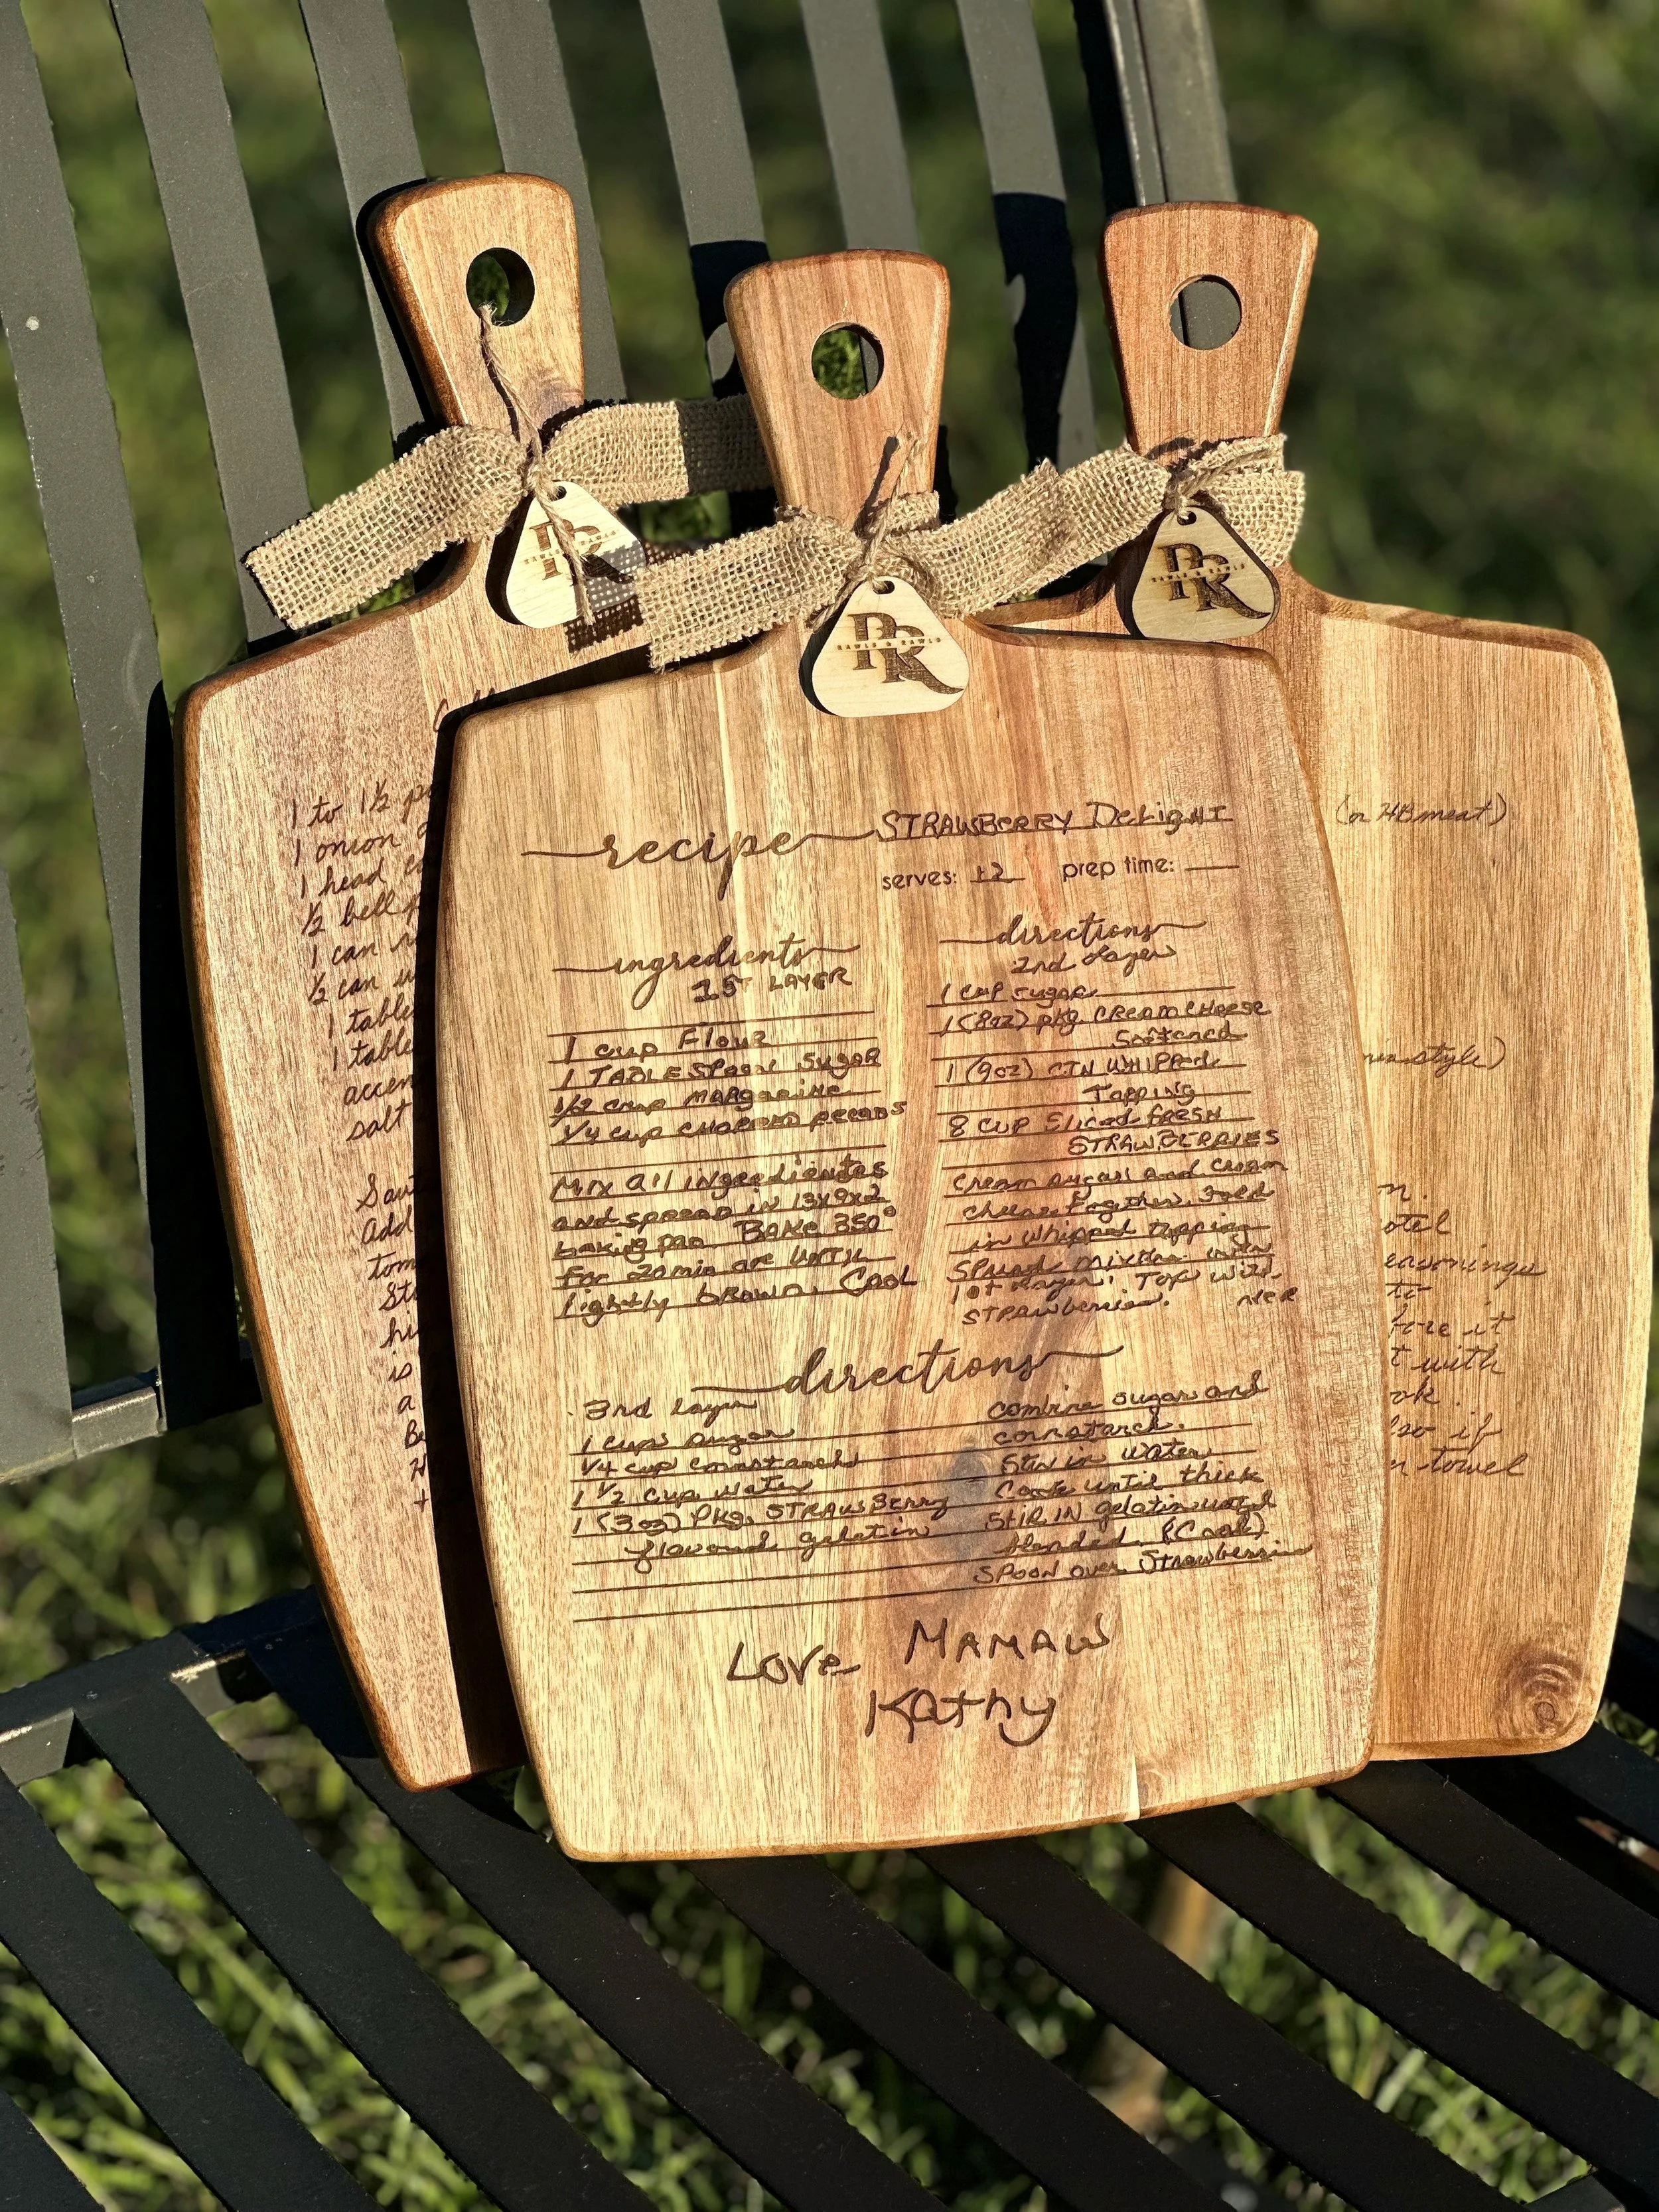 PR
RAWLS & RAWLS
PR
RAWLS & RAWLS
PR
RAWLS & RAWLS
1 to 1½
1 onion
1 head
½ bell
1 can
½ can
1 table
1 table
accen
salt
Add
tom
is
a
recipe STRAWBERRY DeLigHT
serves: 12 prep time:
ingredients
1ST LAYER
1 cup Flour
1 TABLESpoon SugaR
1/2 cup MARgarine
1/4 cup CHOPPED pecans
Mix All ingredientes
and spread in 13x9x2
baking pan. BAKe 350°
For 20 min or UNTIL
lightly brown. Cool
directions
2nd Layer
1 cup sugar
1 (8oz) pkg. CREAM CHeese
Softened
1 (9oz) CTN WHIPPed
Topping
8 CUP Sliced fresh
STRAWBERRIES
Cream sugar and cream
cheese together. Fold
in whipped topping
Spread mixture over
1st layer. Top with
STRAWberries.
directions
3rd Layer
1 cups sugar
1/4 cup cornstarch
1 1/2 cup water
1 (3oz) PKg. STRAWBerry
flavored gelatin
combine sugar and
cornstarch.
Stir in water
Cook until thick
Stir IN gelatin until
blended. (Cool)
SPOON over Strawberries
Love MAMAW
KAthy
(or HB meat)
style)
seasonings
to
it
with
if
towel